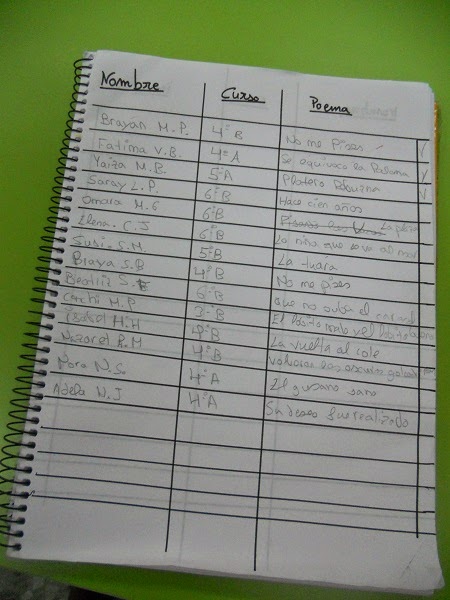 Nombre Curso Poema
Brayan M.P. 4º B No me pises
Fatima V.B. 4º A Se equivoco la Paloma
Yaiza M.B. 5º A Platero
Saray L.P. 6º B Hace cien años
Omara M.G 6º B
Elena. C.J 6º B La niña que se va al mar
Susi. S.M. 5º B La
Braya S.B 4º B No me pises
Beatriz S. 6º B que no suba el
Conchi M.P 3º B El
Isabel M.H 4º B La vuelta al cole
Nazaret R.M 4º B Volveran las oscuras
Nora N.S. 4º A El gusano
Adela N.J 4º A Su deseo fue realizado